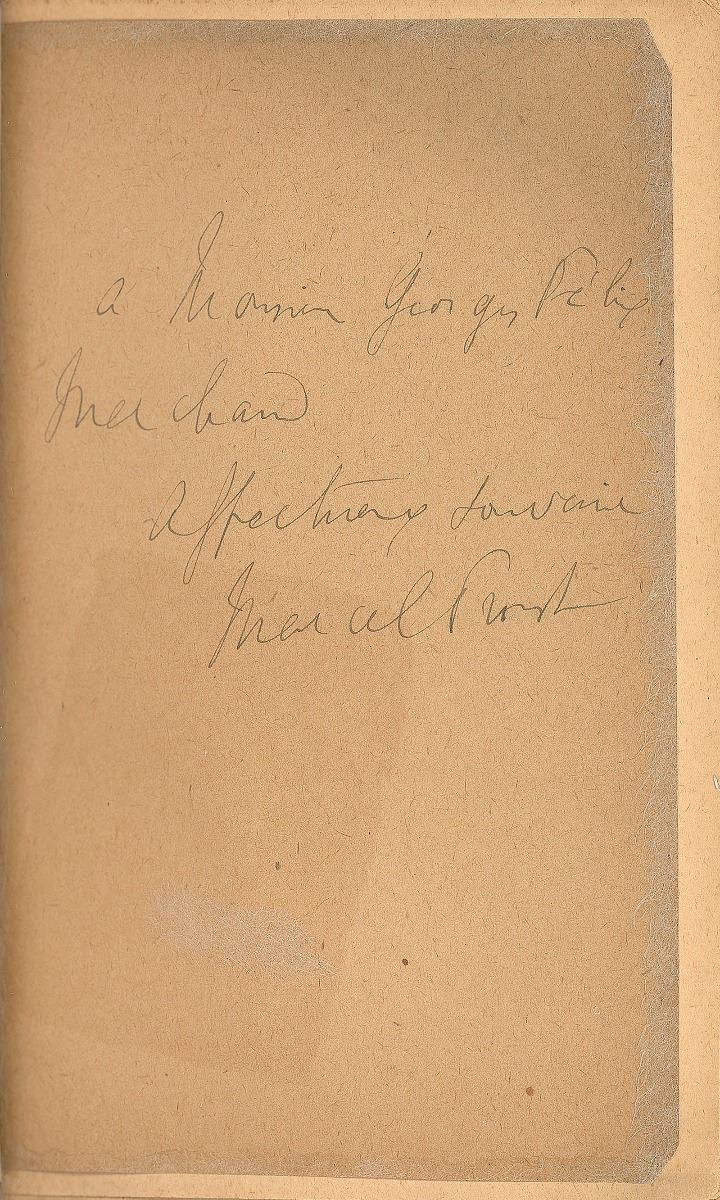 a Monsieur Georges Félix
Marchand
Affectueux souvenir
Marcel Proust